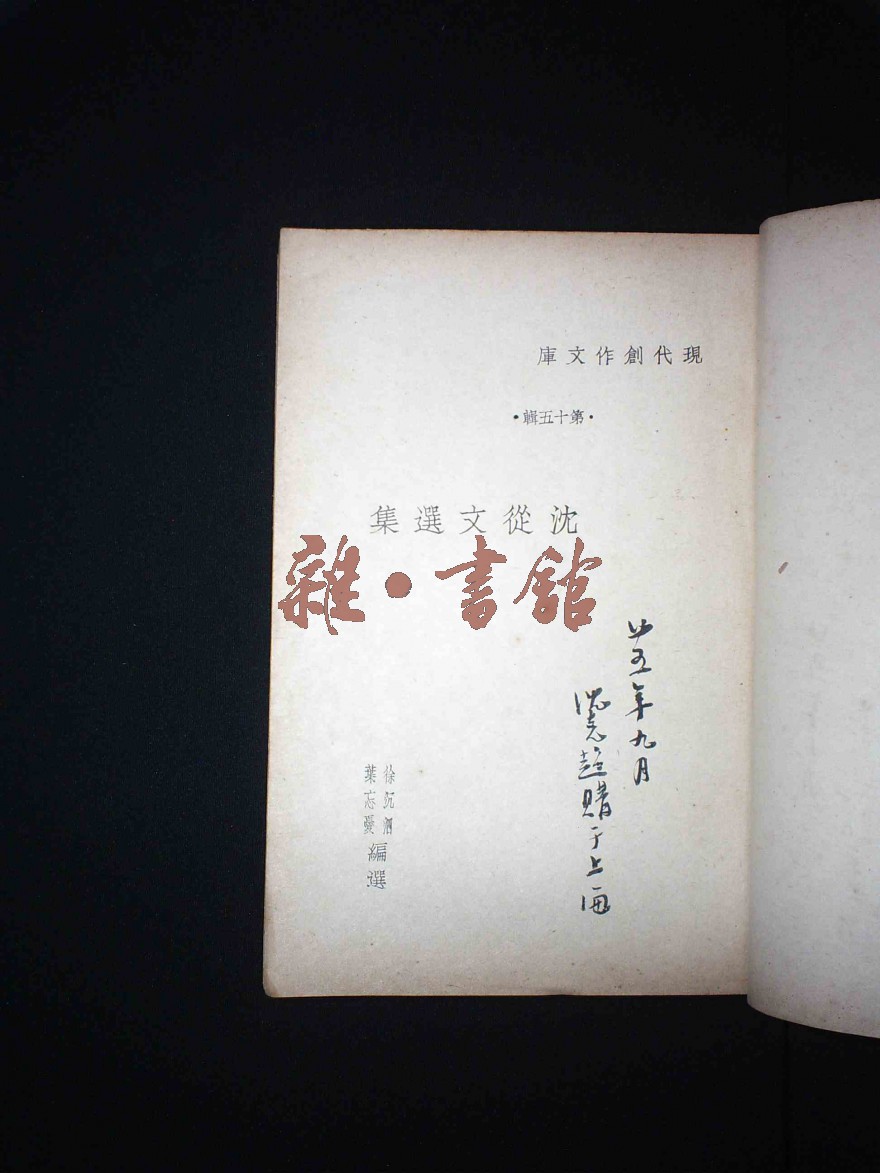 現代創作文庫
•第十五輯•
沈從文選集
雜•書館
廿五年九月
赠于上海
徐沉泗
葉忘憂
編選